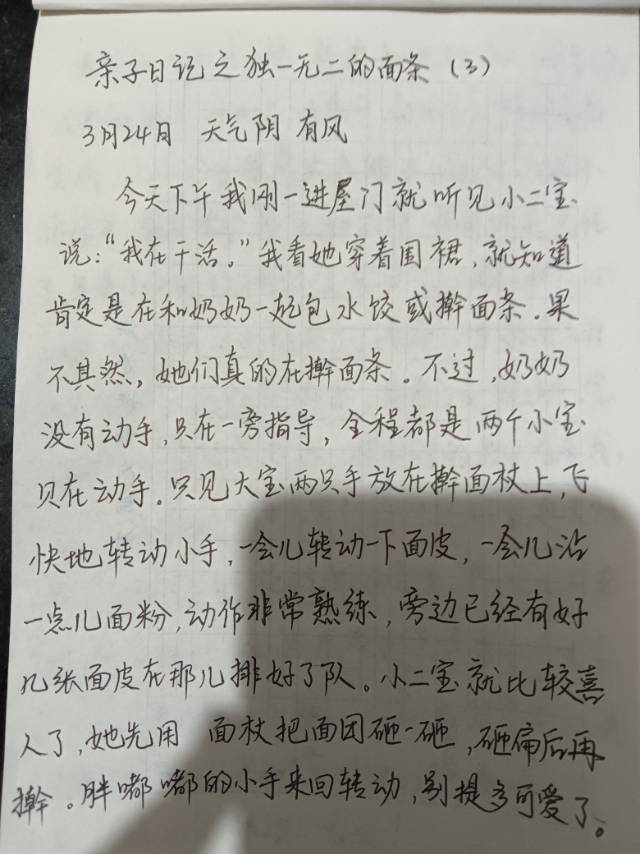 亲子日记之独一无二的面条（3）
3月24日 天气阴 有风
今天下午我刚一进屋门就听见小二宝
说：“我在干活。”我看她穿着围裙，就知道
肯定是在和奶奶一起包水饺或擀面条。果
不其然，她们真的在擀面条。不过，奶奶
没有动手，只在一旁指导，全程都是两个小宝
贝在动手。只见大宝两只手放在擀面杖上，飞
快地转动小手，一会儿转动一下面皮，一会儿沾
一点儿面粉，动作非常熟练，旁边已经有好
几张面皮在那儿排好了队。小二宝就比较喜
人了，她先用 面杖把面团砸一砸，砸扁后再
擀。胖嘟嘟的小手来回转动，别提多可爱了。